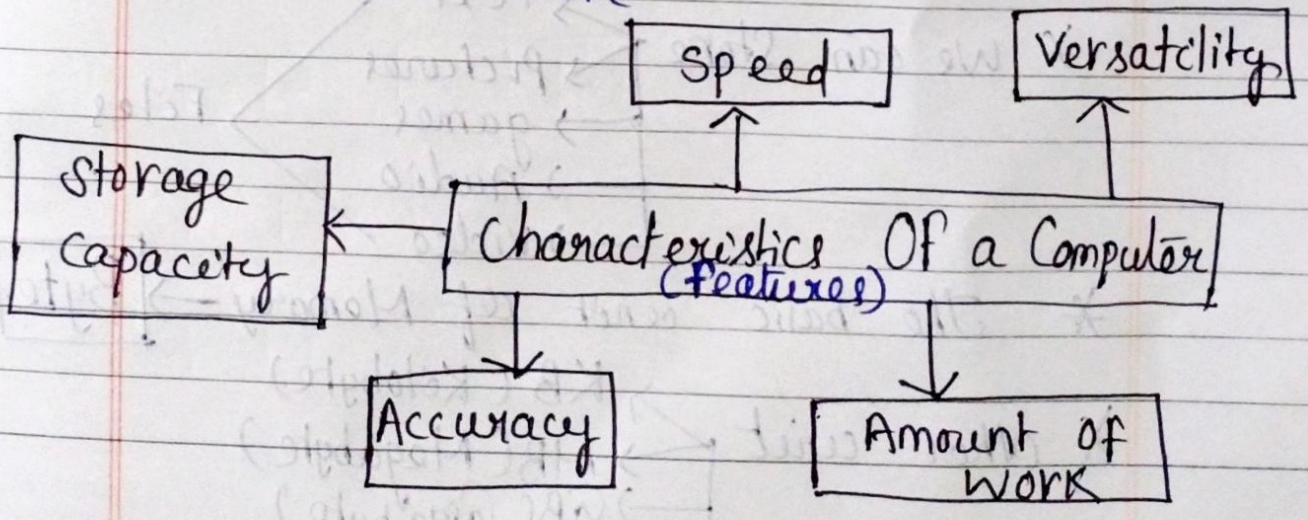 Speed
Versatility
Storage
Capacity
Characteristics Of a Computer
(features)
Accuracy
Amount Of
Work